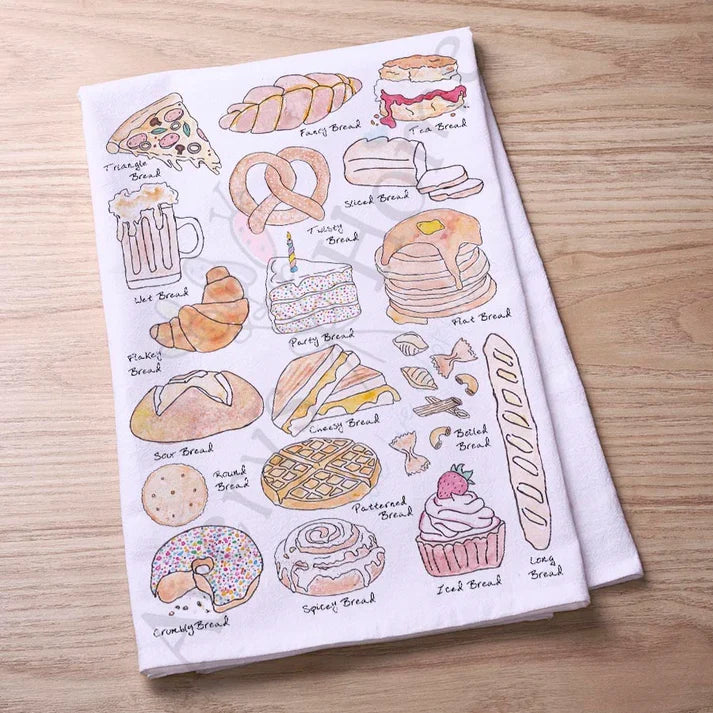 Fancy Bread
Tea Bread
Triangle
Bread
Sliced Bread
Twisty
Bread
Wet Bread
Party Bread
Flat Bread
Flakey
Bread
Cheesy Bread
Sour Bread
Boiled
Bread
Round
Bread
Patterned
Bread
Long
Bread
Iced Bread
Spicey Bread
Crumbly Bread